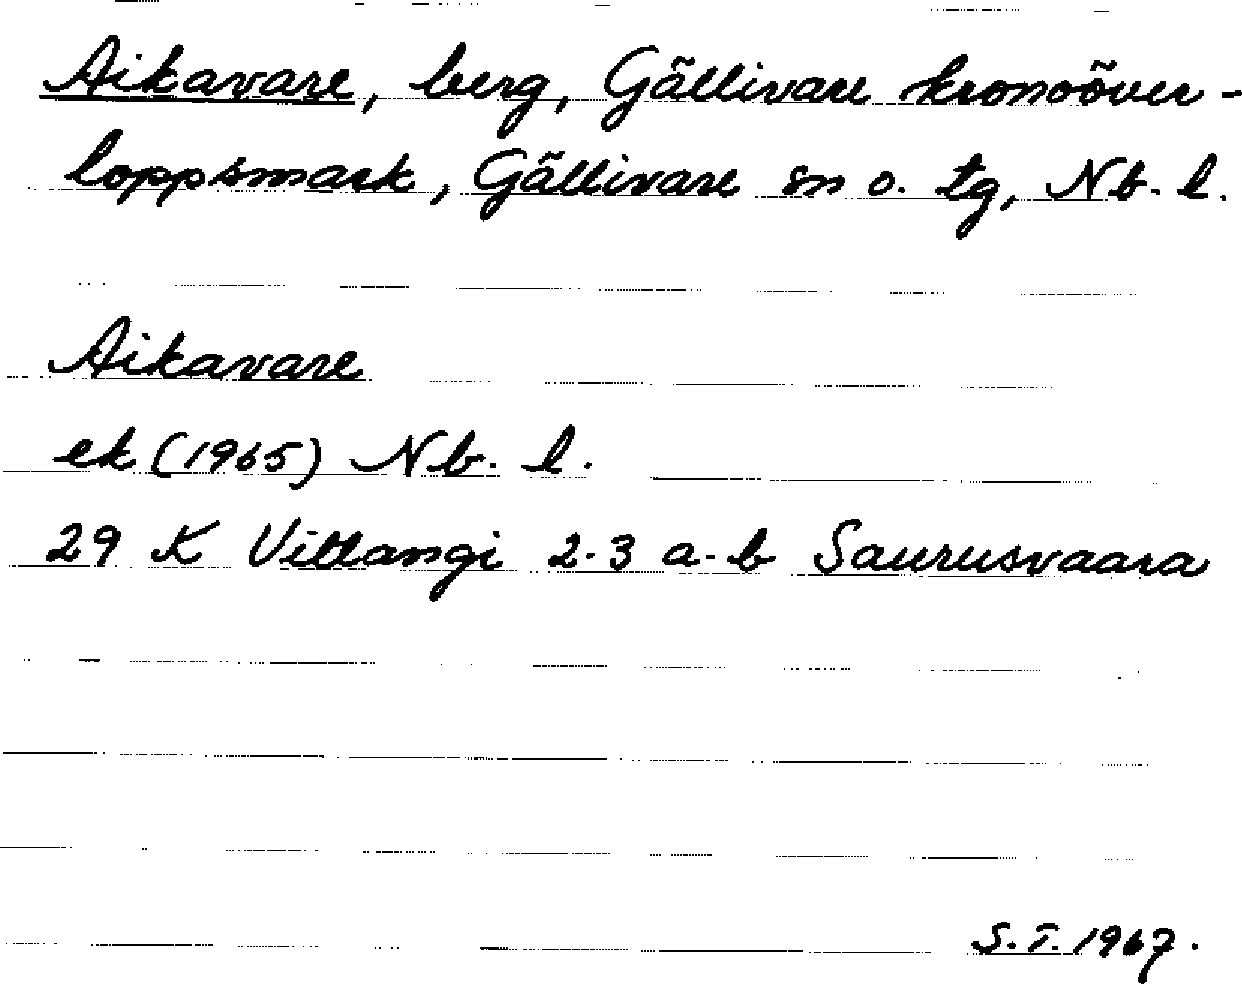 Aikavare, berg, Gällivare kronoöver-
loppsmark, Gällivare sn o. tg, Nb. l.
Aikavare
ek (1965) Nb. l.
29 K Vittangi 2-3 a-b Saurusvaara
S.T. 1967.